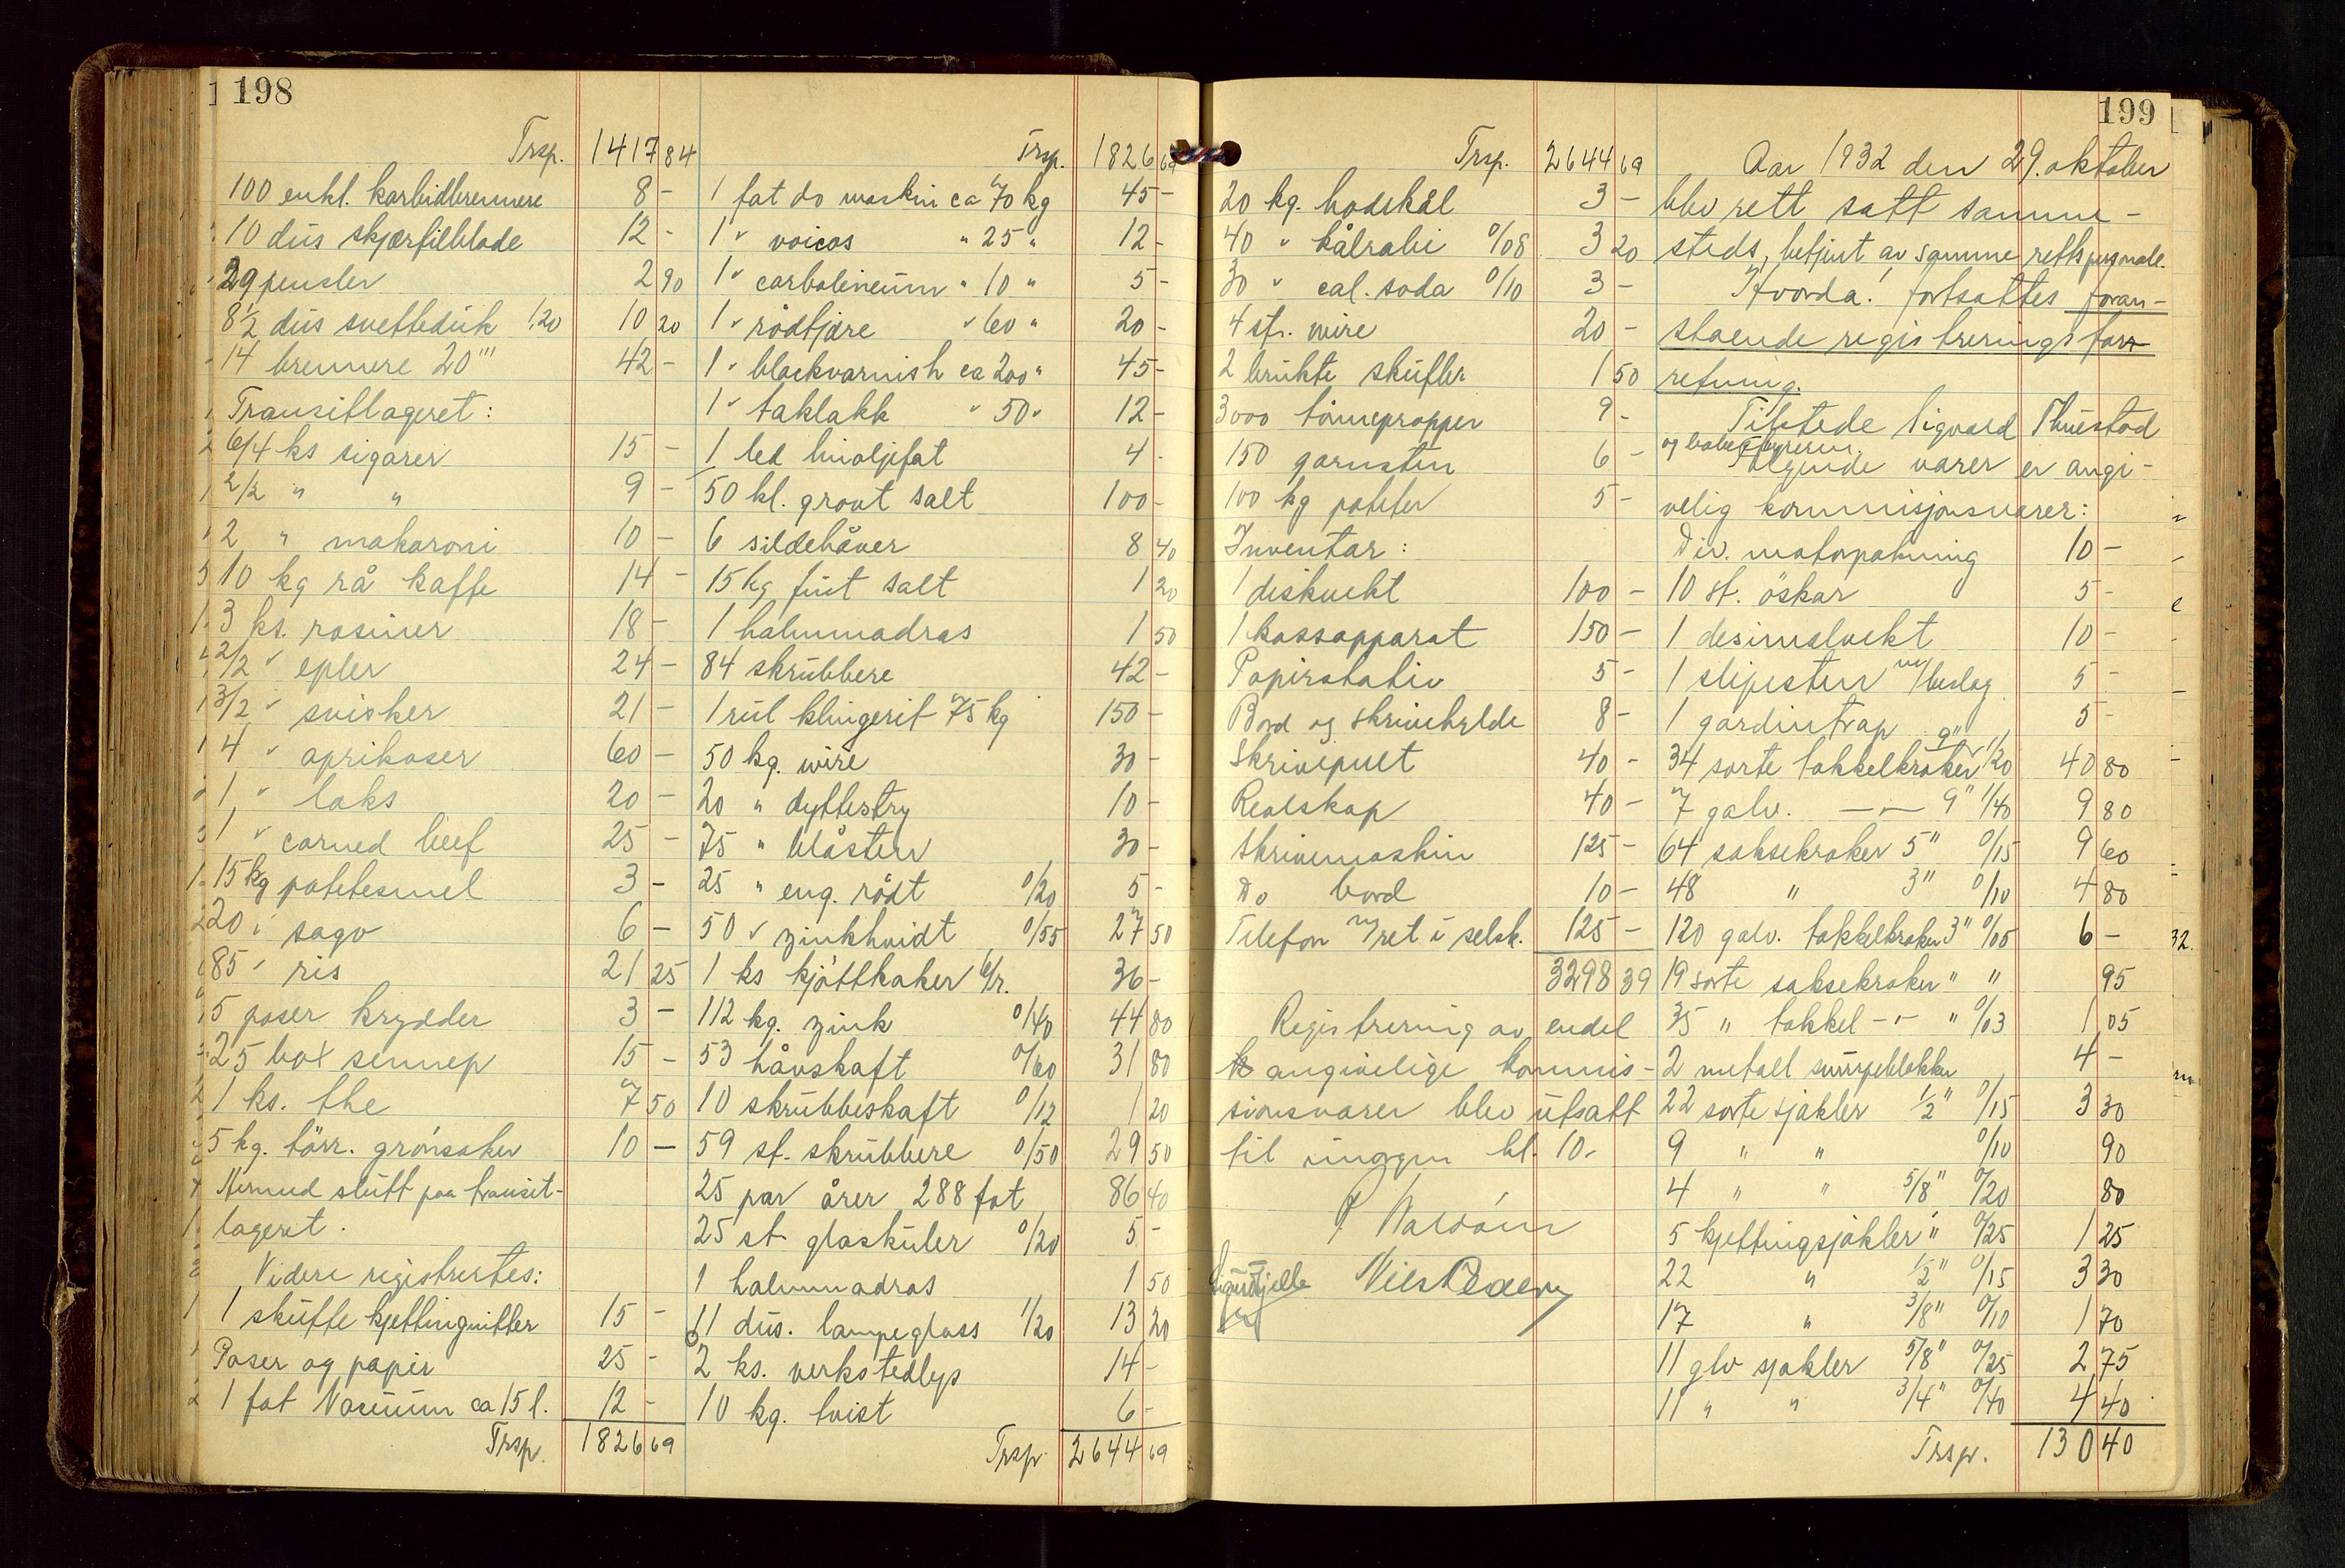 198
Trsp. 1417 84
100 enkl. karbidbrennere 8 -
10 dus skjærfilblade 12 -
29 pensler 2 90
8 1/2 dus svetteduk 1,20 10 20
14 brennere 20''' 42 -
Transitlageret:
6/4 ks sigarer 15 -
2/2 " " 9 -
2 " makaroni 10 -
10 kg rå kaffe 14 -
3 ks. rosiner 18 -
2/2 " epler 24 -
3/2 " svisker 21 -
4 " aprikoser 60 -
1 " laks 20 -
1 " corned beef 25 -
15 kg potetesmel 3 -
20 " sago 6 -
85 " ris 21 25
5 poser krydder 3 -
25 box sennep 15 -
1 ks. the 7 50
5 kg. tørr. grønsaker 10 -
Hermed slutt paa transit-
lageret.
Videre registrertes:
1 skuffe kjettingnitler 15 -
Poser og papir 25 -
1 fat Vacuum ca 15 l. 12 -
Trsp. 1826 69
Trsp. 1826 69
1 fat do maskin ca 70 kg 45 -
1 " voicos " 25 " 12 -
1 " carbolineum " 10 " 5 -
1 " rødtjære " 60 " 20 -
1 " blackvarnish ca 200 " 45 -
1 " taklakk " 50 " 12 -
1 led linoljefat 4 -
50 hl. grovt salt 100 -
6 sildehåver 8 40
15 kg fint salt 1 20
1 halmmadras 1 50
84 skrubbere 42 -
1 rul klingerit 75 kg 150 -
50 kg. wire 30 -
20 " dyttestry 10 -
75 " blåsten 30 -
25 " eng. rødt 0/20 5 -
50 " zinkhvidt 0/55 27 50
1 ks kjøttkaker 6/r. 36 -
112 kg. zink 0/40 44 80
53 håvskaft 0/60 31 80
10 skrubbeskaft 0/12 1 20
59 st. skrubbere 0/50 29 50
25 par årer 288 fot 86 40
25 st. glaskuler 0/20 5 -
1 halmmadras 1 50
11 dus. lampeglass 1/20 13 20
2 ks. verkstedlys 14 -
10 kg. tvist 6 -
Trsp. 2644 69
199
Trsp. 2644 69
20 kg. hodekål 3 -
40 " kålrabi 0/08 3 20
30 " cal. soda 0/10 3 -
4 st. wire 20 -
2 brukte skufler 1 50
3000 tønnepropper 9 -
150 garnsten 6 -
100 kg poteter 5 -
Inventar:
1 diskvekt 100 -
1 kassapparat 150 -
Papirstativ 5 -
Bord og skrivehylde 8 -
Skrivepult 40 -
Realskap 40 -
Skrivemaskin 125 -
Do bord 10 -
Telefon m/ret i selsk. 125 -
3298 39
Registrering av endel
angivelige kommis-
sionsvarer blev utsatt
til imorgen kl. 10.
Aar 1932 den 29. oktober
blev rett satt samme-
steds, betjent av samme rettspersonale.
Hvorda: fortsattes foran-
staaende registreringsfor-
retning.
Tilstede Sigvard Thuestad
og bobestyreren.
Følgende varer er angi-
velig kommisjonsvarer:
Div. motorpakning 10 -
10 st. øskar 5 -
1 desimalvekt 10 -
1 slipesten m/beslag 5 -
1 gardintrap 5 -
34 sorte takkelkroker 9" 1/20 40 80
7 galv. -"- 9" 1/40 9 80
64 saksekroker 5" 0/15 9 60
48 " 3" 0/10 4 80
120 galv. takkelkroker 3" 0/05 6 -
19 sorte saksekroker " " 95
35 " takkel -"- " 0/03 1 05
2 metall snurpeblokker 4 -
22 sorte sjakler 1/2" 0/15 3 30
9 " " 0/10 90
4 " " 5/8" 0/20 80
5 kjettingsjakler " 0/25 1 25
22 " 1/2" 0/15 3 30
17 " 3/8" 0/10 1 70
11 glv sjakler 5/8" 0/25 2 75
11 " " 3/4" 0/40 4 40
Trsp. 130 40